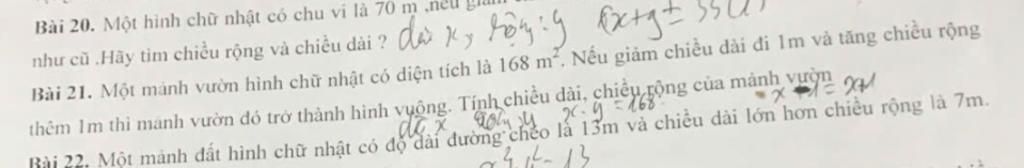 Bài 20. Một hình chữ nhật có chu vi là 70 m ,nếu giảm
như cũ .Hãy tìm chiều rộng và chiều dài ? dài x, rộng : y
Bài 21. Một mảnh vườn hình chữ nhật có diện tích là 168 m². Nếu giảm chiều dài đi 1m và tăng chiều rộng
thêm 1m thì mảnh vườn đó trở thành hình vuông. Tính chiều dài, chiều rộng của mảnh vườn
x . y = 168
Bài 22. Một mảnh đất hình chữ nhật có độ dài đường chéo là 13m và chiều dài lớn hơn chiều rộng là 7m.